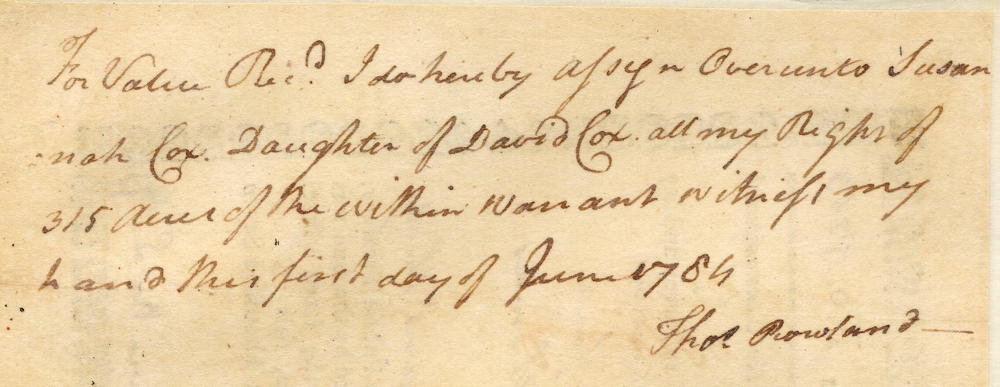 For Value Rec.d I do hereby assign Over unto Susan
nah Cox. Daughter of David Cox. all my Right of
315 Acres of the within Warrant witness my
hand this first day of June 1784
Thos Rowland